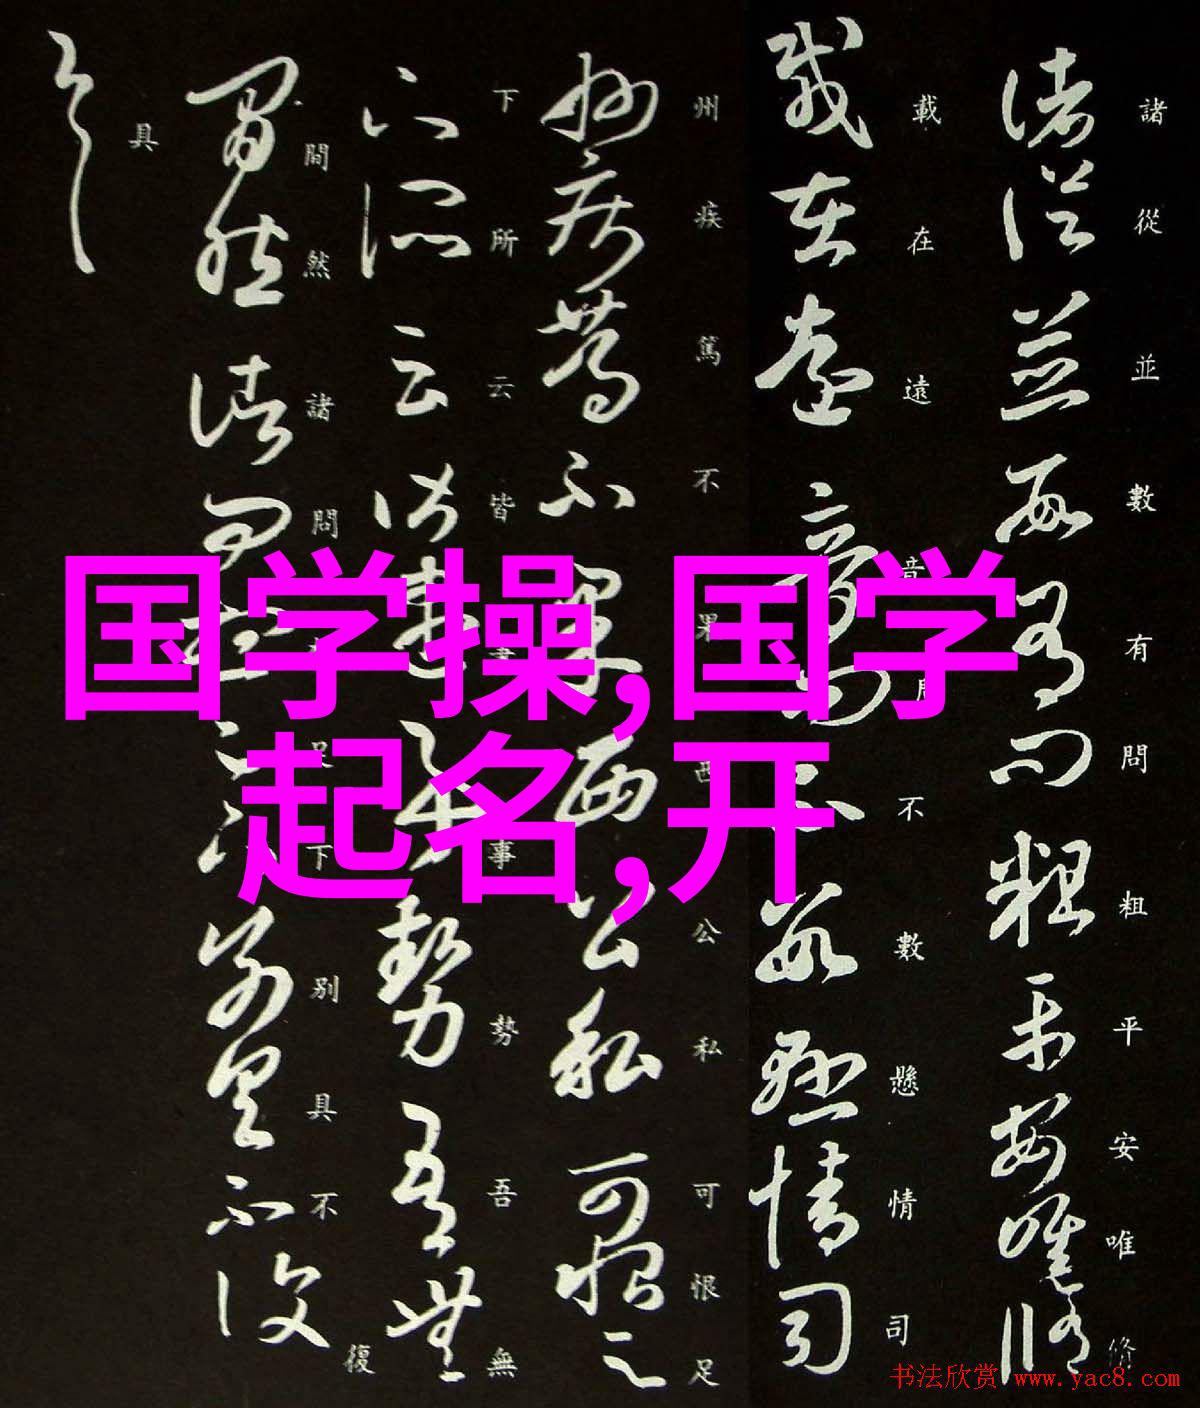 諸從並數有問粗平安唯修
載在遠音問不數懸情司
州疾篤不果西公私可恨足
下所云皆盡事勢吾無
間然諸問想足下別具不復
具
国学操,国学
起名,开
书法欣赏 www.yac8.com